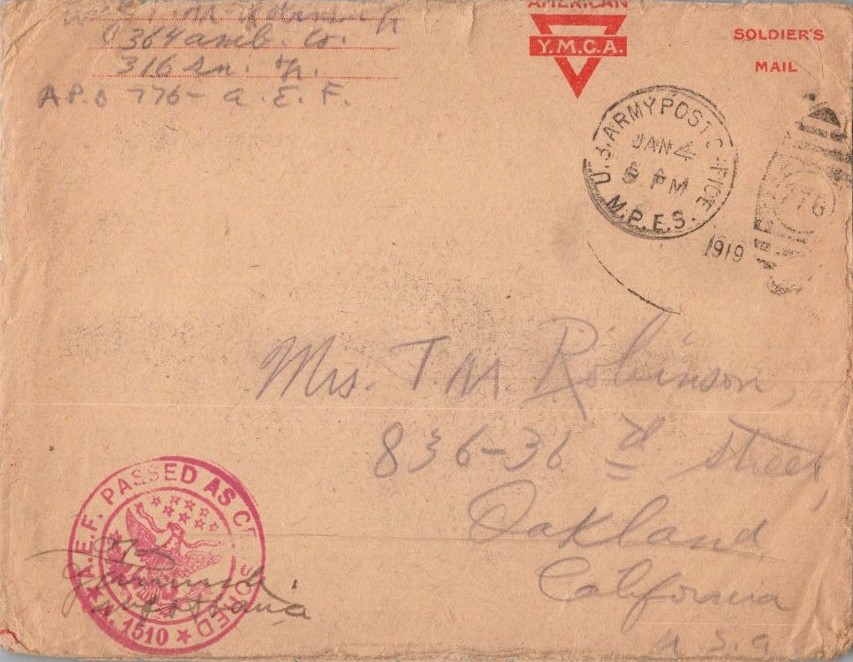 T. M. Robinson
364 amb. Co.
316 Sn. Tr.
A.P.O 776- A. E. F.
AMERICAN
Y.M.C.A.
SOLDIER'S
MAIL
U.S. ARMY POST OFFICE
JAN 4
PM
M.P.E.S.
1919
776
Mrs. T. M. Robinson,
836-36 th street,
Oakland
California
U.S.A
A.E.F. PASSED AS CENSORED
A.1510